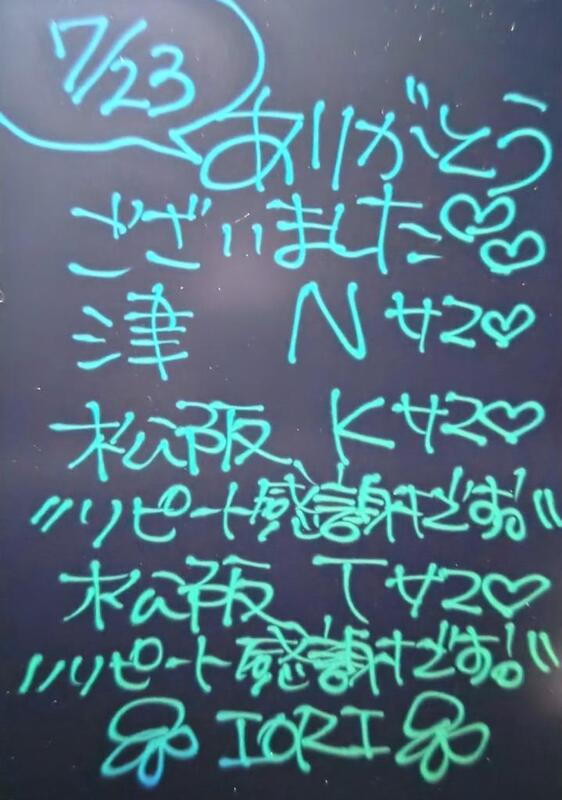 7/23
ありがとう
ございました♡♡
津 N サマ♡
松阪 K サマ♡
〃リピート感謝です!〃
松阪 T サマ♡
〃リピート感謝です!〃
IORI